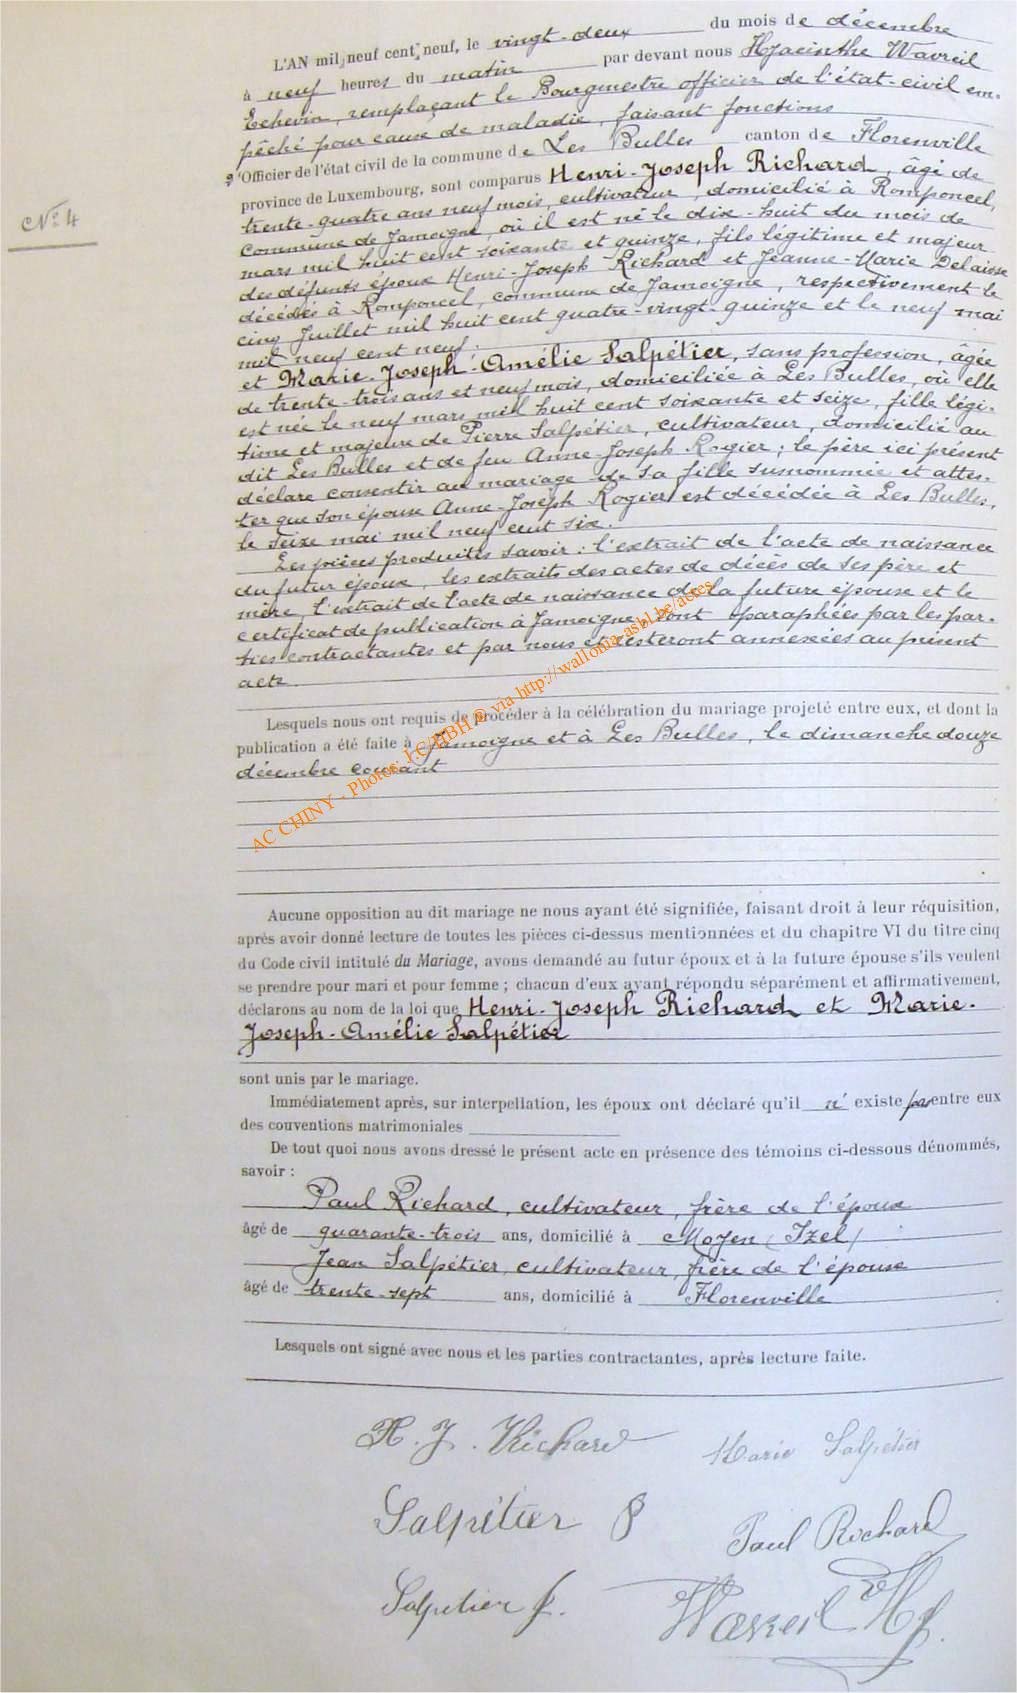 L'AN mil neuf cent neuf, le vingt-deux du mois de décembre
à neuf heures du matin par devant nous Hyacinthe Wavreil
Echevin, remplaçant le Bourgmestre officier de l'état-civil em-
pêché pour cause de maladie, faisant fonctions
d'Officier de l'état civil de la commune de Les Bulles canton de Florenville
province de Luxembourg, sont comparus Henri-Joseph Richard, âgé de
trente-quatre ans neuf mois, cultivateur, domicilié à Romponcel,
commune de Jamoigne, où il est né le dix-huit du mois de
mars mil huit cent soixante et quinze, fils légitime et majeur
des défunts époux Henri-Joseph Richard et Jeanne-Marie Delaisse
décédés à Romponcel, commune de Jamoigne, respectivement le
cinq Juillet mil huit cent quatre-vingt-quinze et le neuf mai
mil neuf cent neuf.
et Marie-Joseph-Amélie Salpétier, sans profession, âgée
de trente-trois ans et neuf mois, domiciliée à Les Bulles, où elle
est née le neuf mars mil huit cent soixante et seize, fille légi-
time et majeure de Pierre Salpétier, cultivateur, domicilié au
dit Les Bulles et de feu Anne-Joseph Rogier; le père ici présent
déclare consentir au mariage de sa fille surnommée et attes-
ter que son épouse Anne-Joseph Rogier est décédée à Les Bulles,
le seize mai mil neuf cent six.
Les pièces produites savoir: l'extrait de l'acte de naissance
du futur époux, les extraits des actes de décès de ses père et
N° 4
mère, l'extrait de l'acte de naissance de la future épouse et le
certificat de publication à Jamoigne, sont paraphées par les par-
ties contractantes et par nous et resteront annexées au présent
acte.
Lesquels nous ont requis de procéder à la célébration du mariage projeté entre eux, et dont la
publication a été faite à Jamoigne et à Les Bulles, le dimanche douze
décembre courant
AC CHINY - Photos: J.C/HBH © via http://wallonia-asbl.be/actes
Aucune opposition au dit mariage ne nous ayant été signifiée, faisant droit à leur réquisition,
après avoir donné lecture de toutes les pièces ci-dessus mentionnées et du chapitre VI du titre cinq
du Code civil intitulé du Mariage, avons demandé au futur époux et à la future épouse s'ils veulent
se prendre pour mari et pour femme; chacun d'eux ayant répondu séparément et affirmativement,
déclarons au nom de la loi que Henri-Joseph Richard et Marie-
Joseph-Amélie Salpétier
sont unis par le mariage.
Immédiatement après, sur interpellation, les époux ont déclaré qu'il n' existe pas entre eux
des conventions matrimoniales
De tout quoi nous avons dressé le présent acte en présence des témoins ci-dessous dénommés,
savoir :
Paul Richard, cultivateur, frère de l'époux
âgé de quarante-trois ans, domicilié à Moyen (Izel)
Jean Salpétier, cultivateur, frère de l'épouse
âgé de trente-sept ans, domicilié à Florenville
Lesquels ont signé avec nous et les parties contractantes, après lecture faite.
H. J. Richard Marie Salpétier
Salpétier P Paul Richard
Salpetier J. Wavreil Hy.